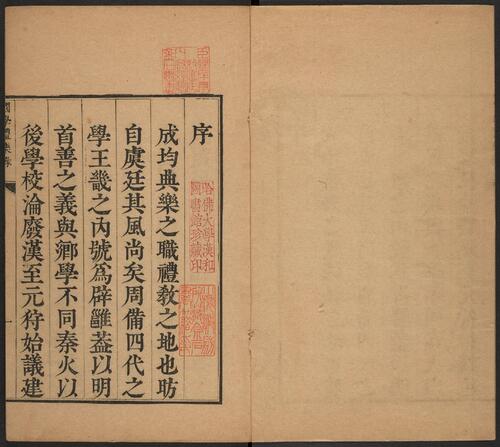 序
成均典樂之職禮教之地也昉
自虞廷其風尚矣周備四代之
學王畿之內號爲辟雝葢以明
首善之義與鄉學不同秦火以
後學校淪廢漢至元狩始議建
國學禮樂錄
一
哈佛大學漢和
圖書館珍藏印